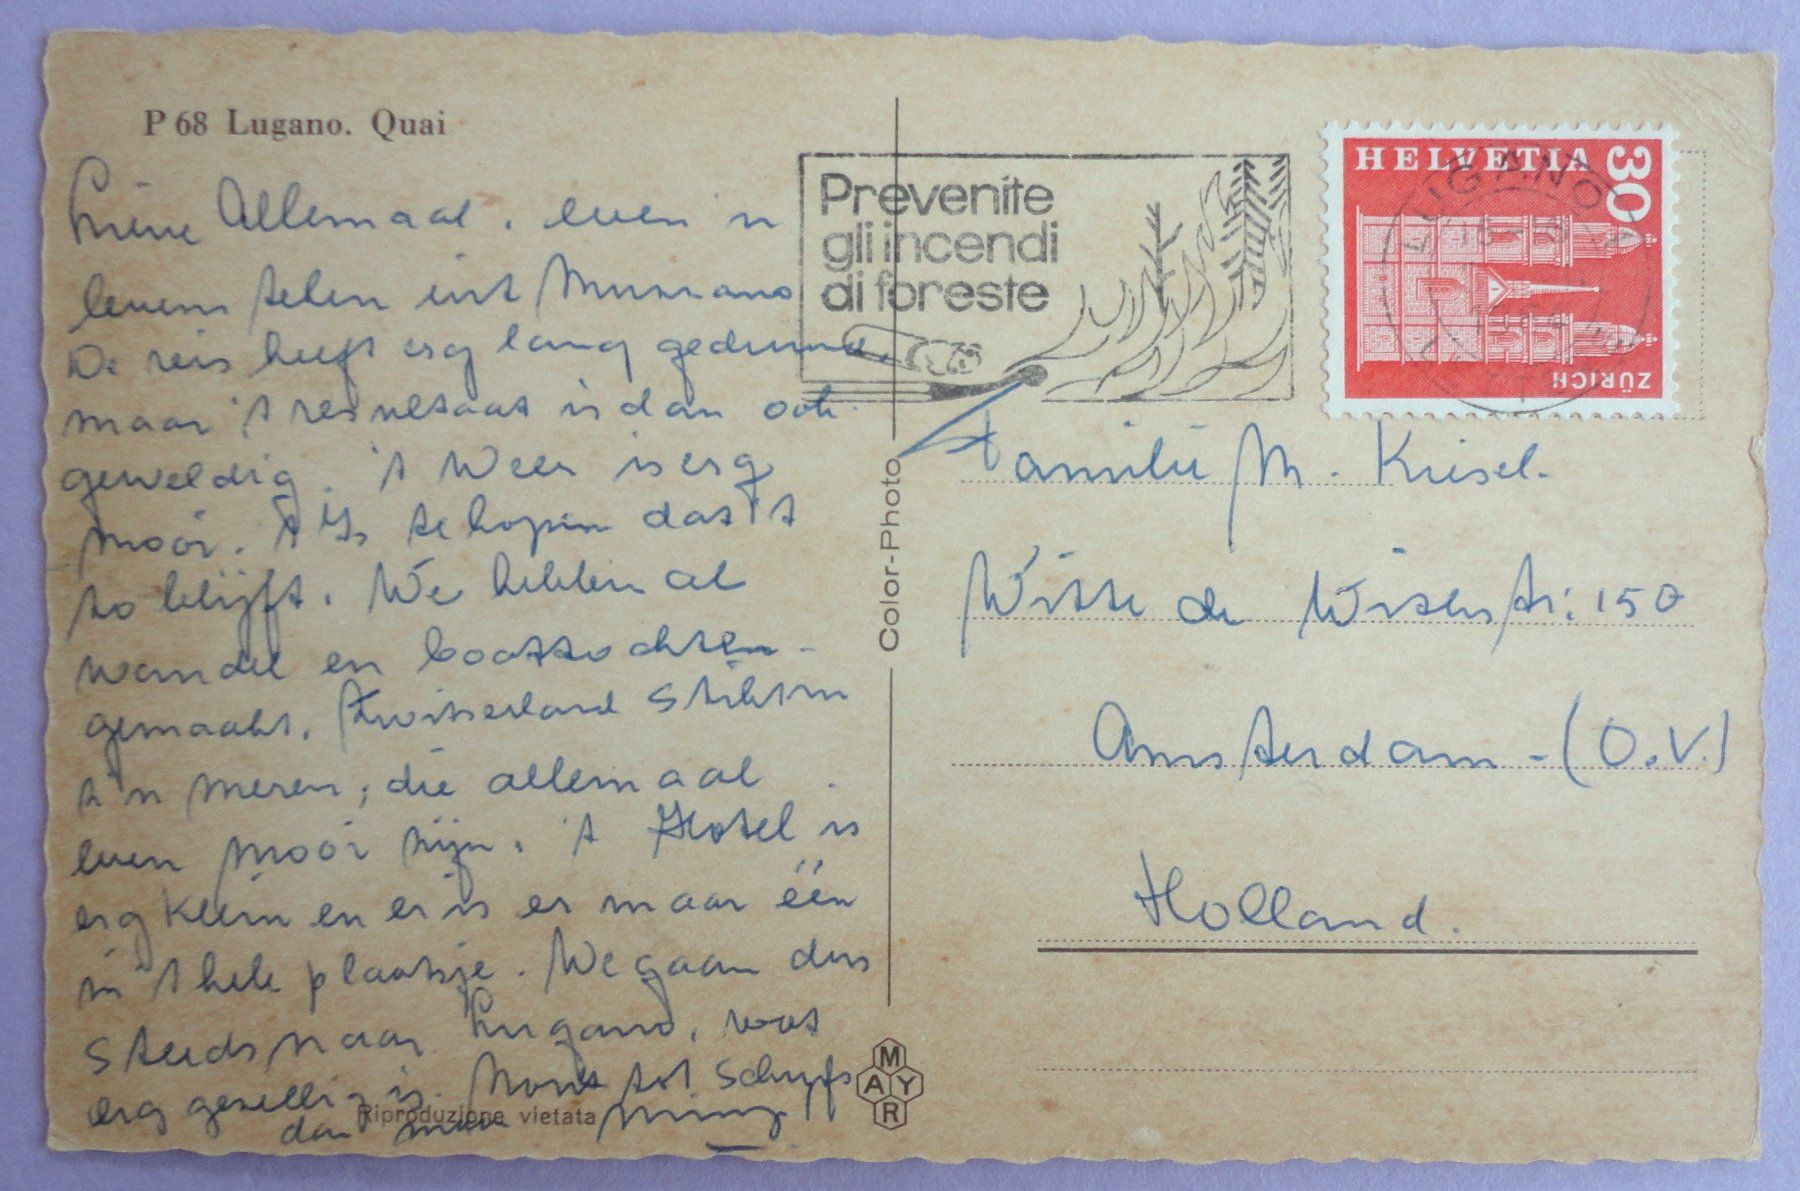 P 68 Lugano. Quai
Lieve Allemaal, even 'n
levens teken uit
De reis heeft erg lang geduurd,
maar 't resultaat is dan ook
geweldig. 't Weer is erg
mooi. 't Is te hopen dat 't
zo blijft. We hebben al
wandel en boottochten
gemaakt. Zwitserland stikt
z'n meren, die allemaal
even mooi zijn. 't Hotel is
erg klein en er is er maar één
in 't hele plaatsje. We gaan dus
steeds naar Lugano, wat
erg gezellig is. tot schrijfs
dan maar
Riproduzione vietata
Color-Photo
MAYR
Prevenite
gli incendi
di foreste
HELVETIA 30
ZÜRICH
LUGANO
Familie M. Kiesel.
Witte de Withstr: 150
Amsterdam - (O.V.)
Holland.